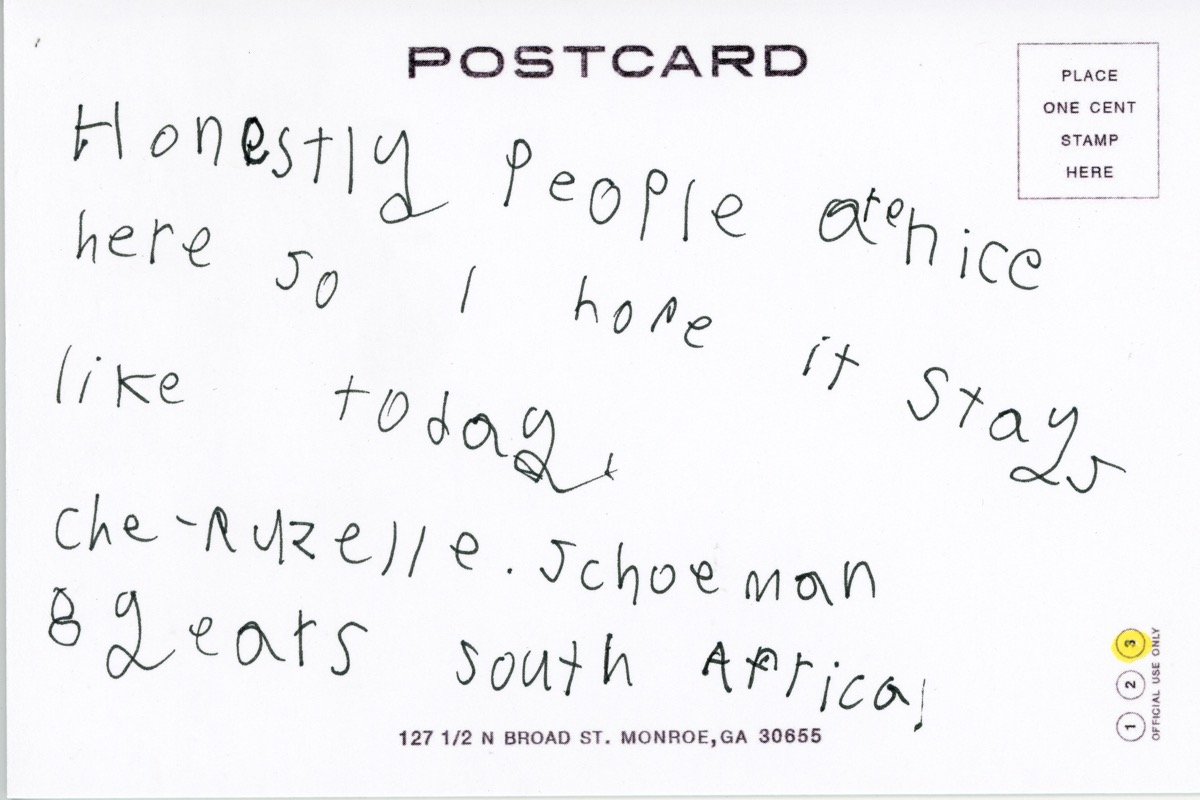 POSTCARD
PLACE
ONE CENT
STAMP
HERE
Honestly People are nice
here so I hope it stays
like today.
Che-Ryzelle. Schoeman
8 years South Africa
127 1/2 N BROAD ST. MONROE, GA 30655
1 2 3
OFFICIAL USE ONLY